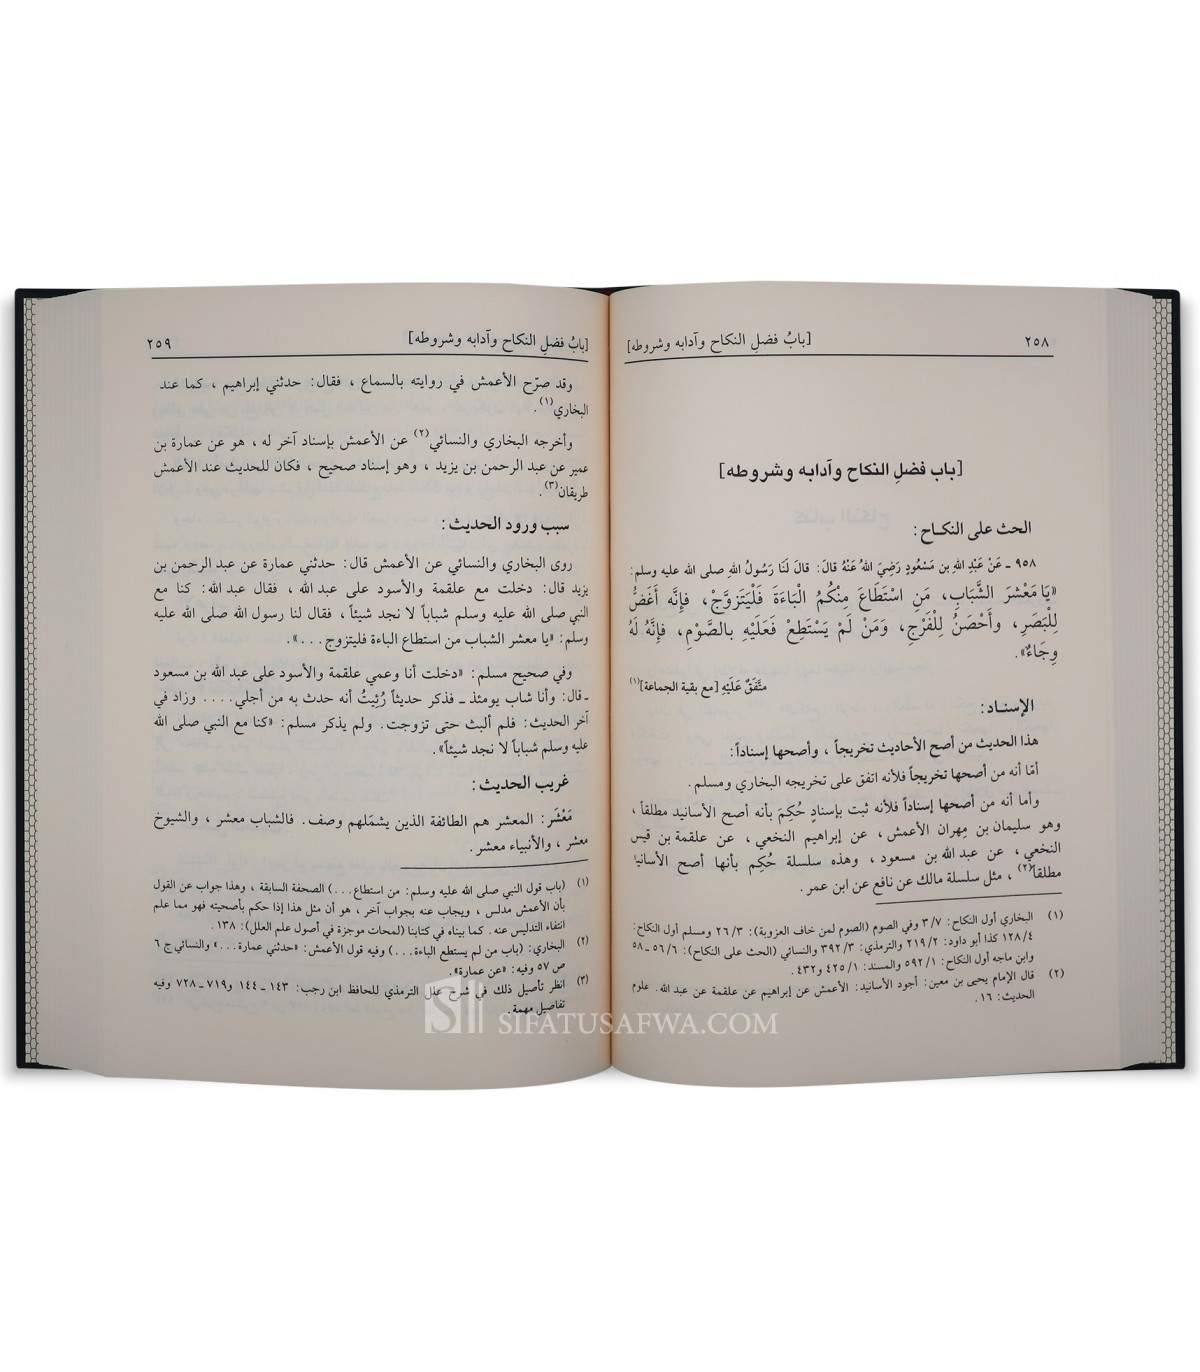 [بابُ فضلِ النكاح وآدابه وشروطه] ٢٥٨
[باب فضلِ النكاح وآدابه وشروطه]
الحث على النكـاح :
٩٥٨ ـ عَنْ عَبْدِ اللهِ بن مَسْعُودٍ رَضِيَ اللهُ عَنْهُ قالَ: قالَ لَنَا رَسُولُ اللهِ صلى الله عليه وسلم:
«يَا مَعْشَرَ الشَّبَابِ، مَنِ اسْتَطَاعَ مِنْكُمُ الْبَاءَةَ فَلْيَتَزوَّجْ، فإنَّه أَغَضُّ
لِلْبَصَرِ، وأَحْصَنُ لِلْفَرْجِ، وَمَنْ لَمْ يَسْتَطِعْ فَعَلَيْهِ بالصَّوْمِ، فإنَّهُ لَهُ
وِجَاءٌ».
متَّفَقٌ عَلَيْهِ [مع بقية الجماعة](١)
الإسنـاد :
هذا الحديث من أصح الأحاديث تخريجاً ، وأصحها إسناداً:
أمّا أنه من أصحها تخريجاً فلأنه اتفق على تخريجه البخاري ومسلم.
وأما أنه من أصحها إسناداً فلأنه ثبت بإسنادٍ حُكِمَ بأنه أصح الأسانيد مطلقاً ،
وهو سليمان بن مهران الأعمش ، عن إبراهيم النخعي ، عن علقمة بن قيس
النخعي ، عن عبد الله بن مسعود ، وهذه سلسلة حُكِم بأنها أصح الأسانيد
مطلقاً(٢) ، مثل سلسلة مالك عن نافع عن ابن عمر .
(١) البخاري أول النكاح: ٣/٧ وفي الصوم (الصوم لمن خاف العزوبة): ٢٦/٣ ومسلم أول النكاح:
١٢٨/٤ كذا أبو داود: ٢١٩/٢ والترمذي: ٣٩٢/٣ والنسائي (الحث على النكاح): ٥٦/٦ ـ ٥٨
وابن ماجه أول النكاح: ٥٩٢/١ والمسند: ٤٢٥/١ و٤٣٢.
(٢) قال الإمام يحيى بن معين: أجود الأسانيد: الأعمش عن إبراهيم عن علقمة عن عبد الله. علوم
الحديث: ١٦.
[بابُ فضلِ النكاح وآدابه وشروطه] ٢٥٩
وقد صرّح الأعمش في روايته بالسماع ، فقال: حدثني إبراهيم ، كما عند
البخاري(١).
وأخرجه البخاري والنسائي(٢) عن الأعمش بإسناد آخر له ، هو عن عمارة بن
عمير عن عبد الرحمن بن يزيد ، وهو إسناد صحيح ، فكان للحديث عند الأعمش
طريقان(٣).
سبب ورود الحديث :
روى البخاري والنسائي عن الأعمش قال: حدثني عمارة عن عبد الرحمن بن
يزيد قال: دخلت مع علقمة والأسود على عبد الله ، فقال عبد الله: كنا مع
النبي صلى الله عليه وسلم شباباً لا نجد شيئاً ، فقال لنا رسول الله صلى الله عليه
وسلم: «يا معشر الشباب من استطاع الباءة فليتزوج . . .».
وفي صحيح مسلم: «دخلت أنا وعمي علقمة والأسود على عبد الله بن مسعود
ـ قال: وأنا شاب يومئذ ـ فذكر حديثاً رُئِيتُ أنه حدث به من أجلي. . . . وزاد في
آخر الحديث: فلم ألبث حتى تزوجت. ولم يذكر مسلم: «كنا مع النبي صلى الله
عليه وسلم شباباً لا نجد شيئاً».
غريب الحديث :
مَعْشَر: المعشر هم الطائفة الذين يشمَلهم وصف. فالشباب معشر ، والشيوخ
معشر ، والأنبياء معشر.
(١) (باب قول النبي صلى الله عليه وسلم: من استطاع. . .) الصحفة السابقة ، وهذا جواب عن القول
بأن الأعمش مدلس ، ويجاب عنه بجواب آخر ، هو أن مثل هذا إذا حكم بأصحيته فهو مما علم
انتفاء التدليس عنه. كما بيناه في كتابنا (لمحات موجزة في أصول علم العلل): ١٣٨.
(٢) البخاري: (باب من لم يستطع الباءة. . .) وفيه قول الأعمش: «حدثني عمارة. . .» والنسائي ج ٦
ص ٥٧ وفيه: «عن عمارة».
(٣) انظر تأصيل ذلك في شرح علل الترمذي للحافظ ابن رجب: ١٤٣ ـ ١٤٤ و٧١٩ ـ ٧٢٨ وفيه
تفاصيل مهمة.
SIFATUSAFWA.COM